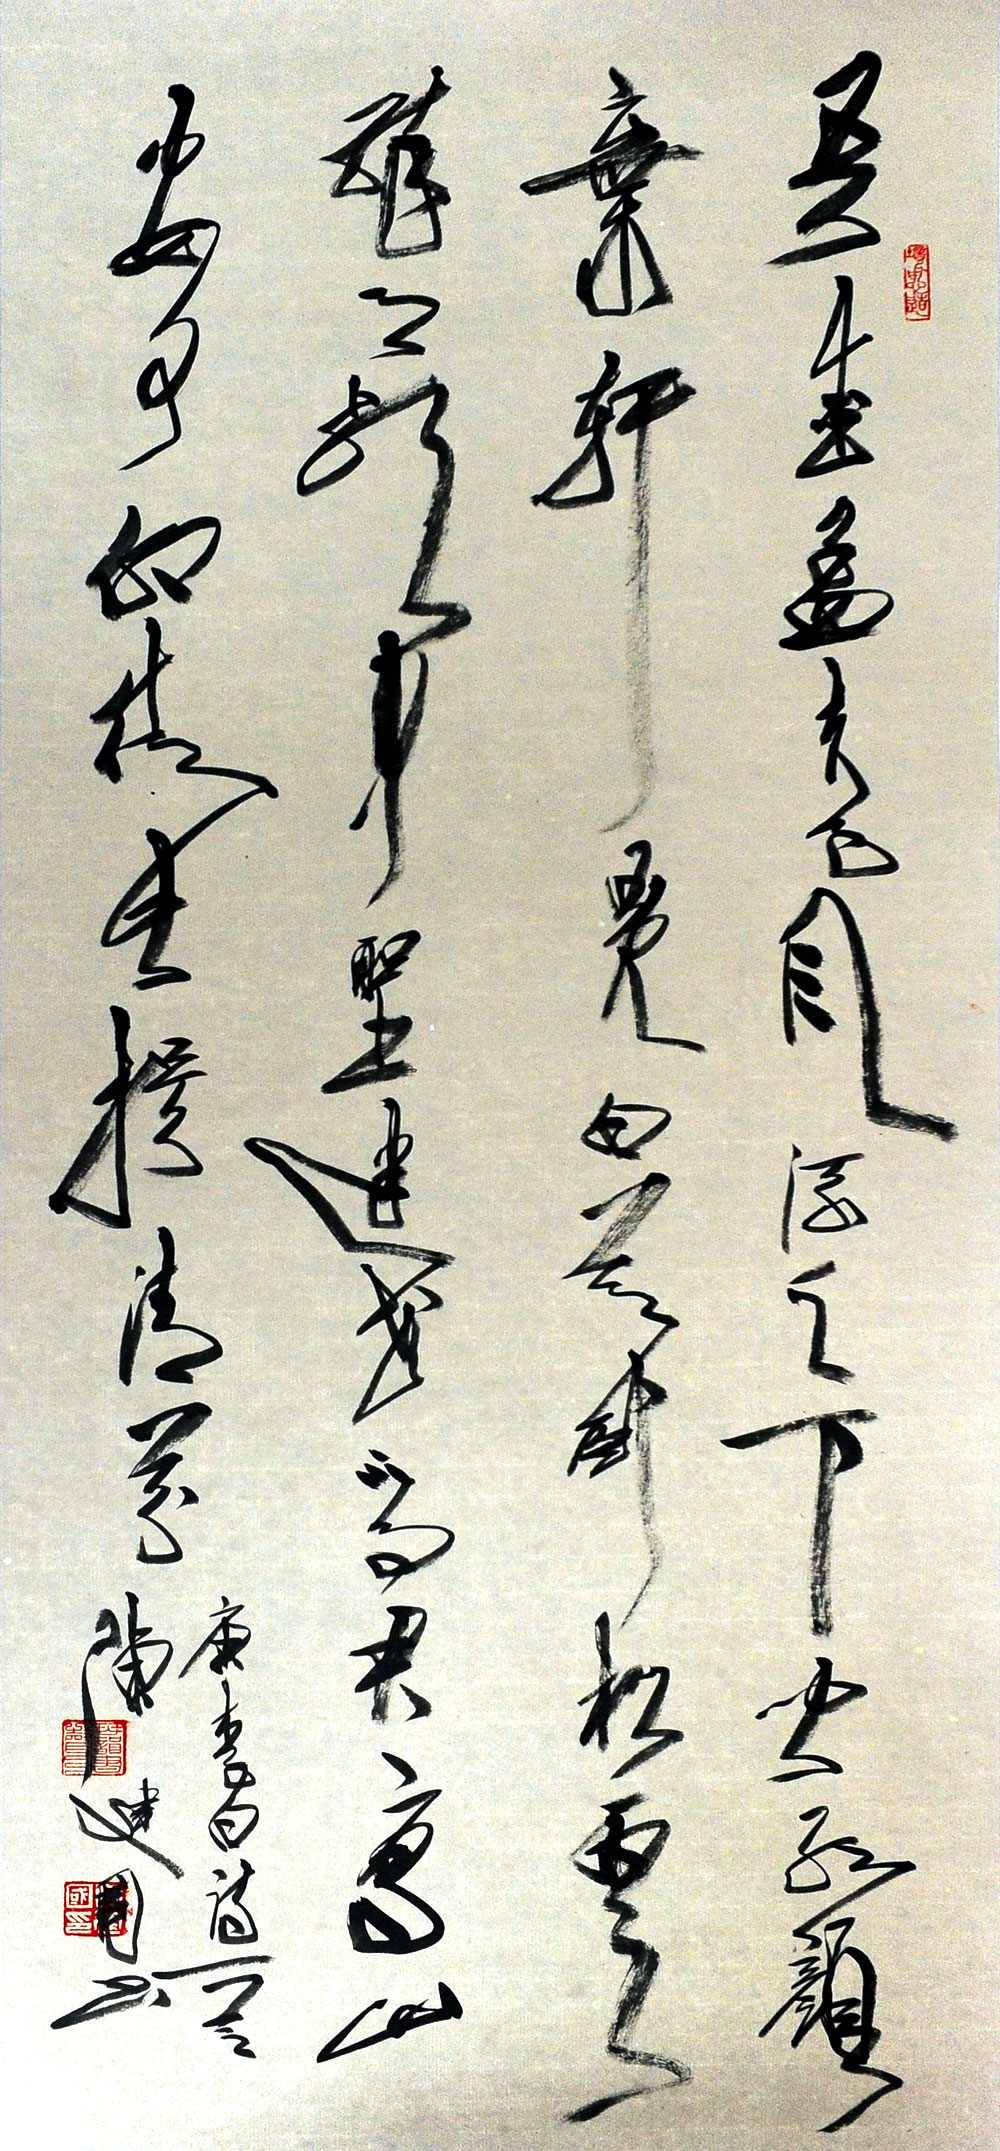 吾愛孟夫子風流天下聞紅顏
棄軒冕白首臥松雲
醉月頻中聖迷花不事君高山
安可仰徒此揖清芬
唐李白詩一首
陳建國书